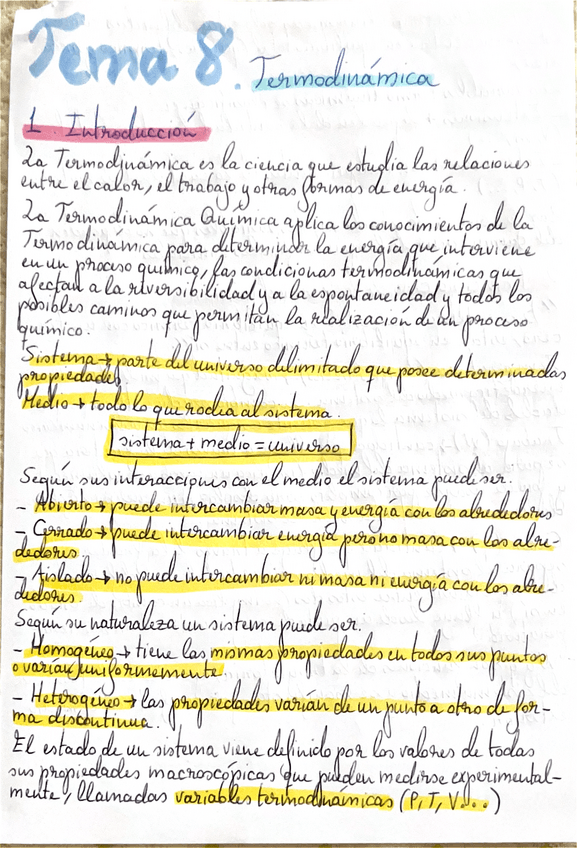 Tema 8. Termodinámica
1. Introducción
La Termodinámica es la ciencia que estudia las relaciones
entre el calor, el trabajo y otras formas de energía.
La Termodinámica Química aplica los conocimientos de la
Termodinámica para determinar la energía que interviene
en un proceso químico, las condiciones termodinámicas que
afectan a la reversibilidad y a la espontaneidad y todos los
posibles caminos que permitan la realización de un proceso
químico.
Sistema → parte del universo delimitado que posee determinadas
propiedades.
Medio → todo lo que rodea al sistema.
sistema + medio = universo
Según sus interacciones con el medio el sistema puede ser.
- Abierto → puede intercambiar masa y energía con los alrededores
- Cerrado → puede intercambiar energía pero no masa con los alre-
dedores.
- Aislado → no puede intercambiar ni masa ni energía con los alre-
dedores.
Según su naturaleza un sistema puede ser.
- Homogéneo → tiene las mismas propiedades en todos sus puntos
o varían uniformemente.
- Heterogéneo → las propiedades varían de un punto a otro de for-
ma discontinua.
El estado de un sistema viene definido por los valores de todas
sus propiedades macroscópicas que pueden medirse experimental-
mente, llamadas variables termodinámicas (P, T, V...)